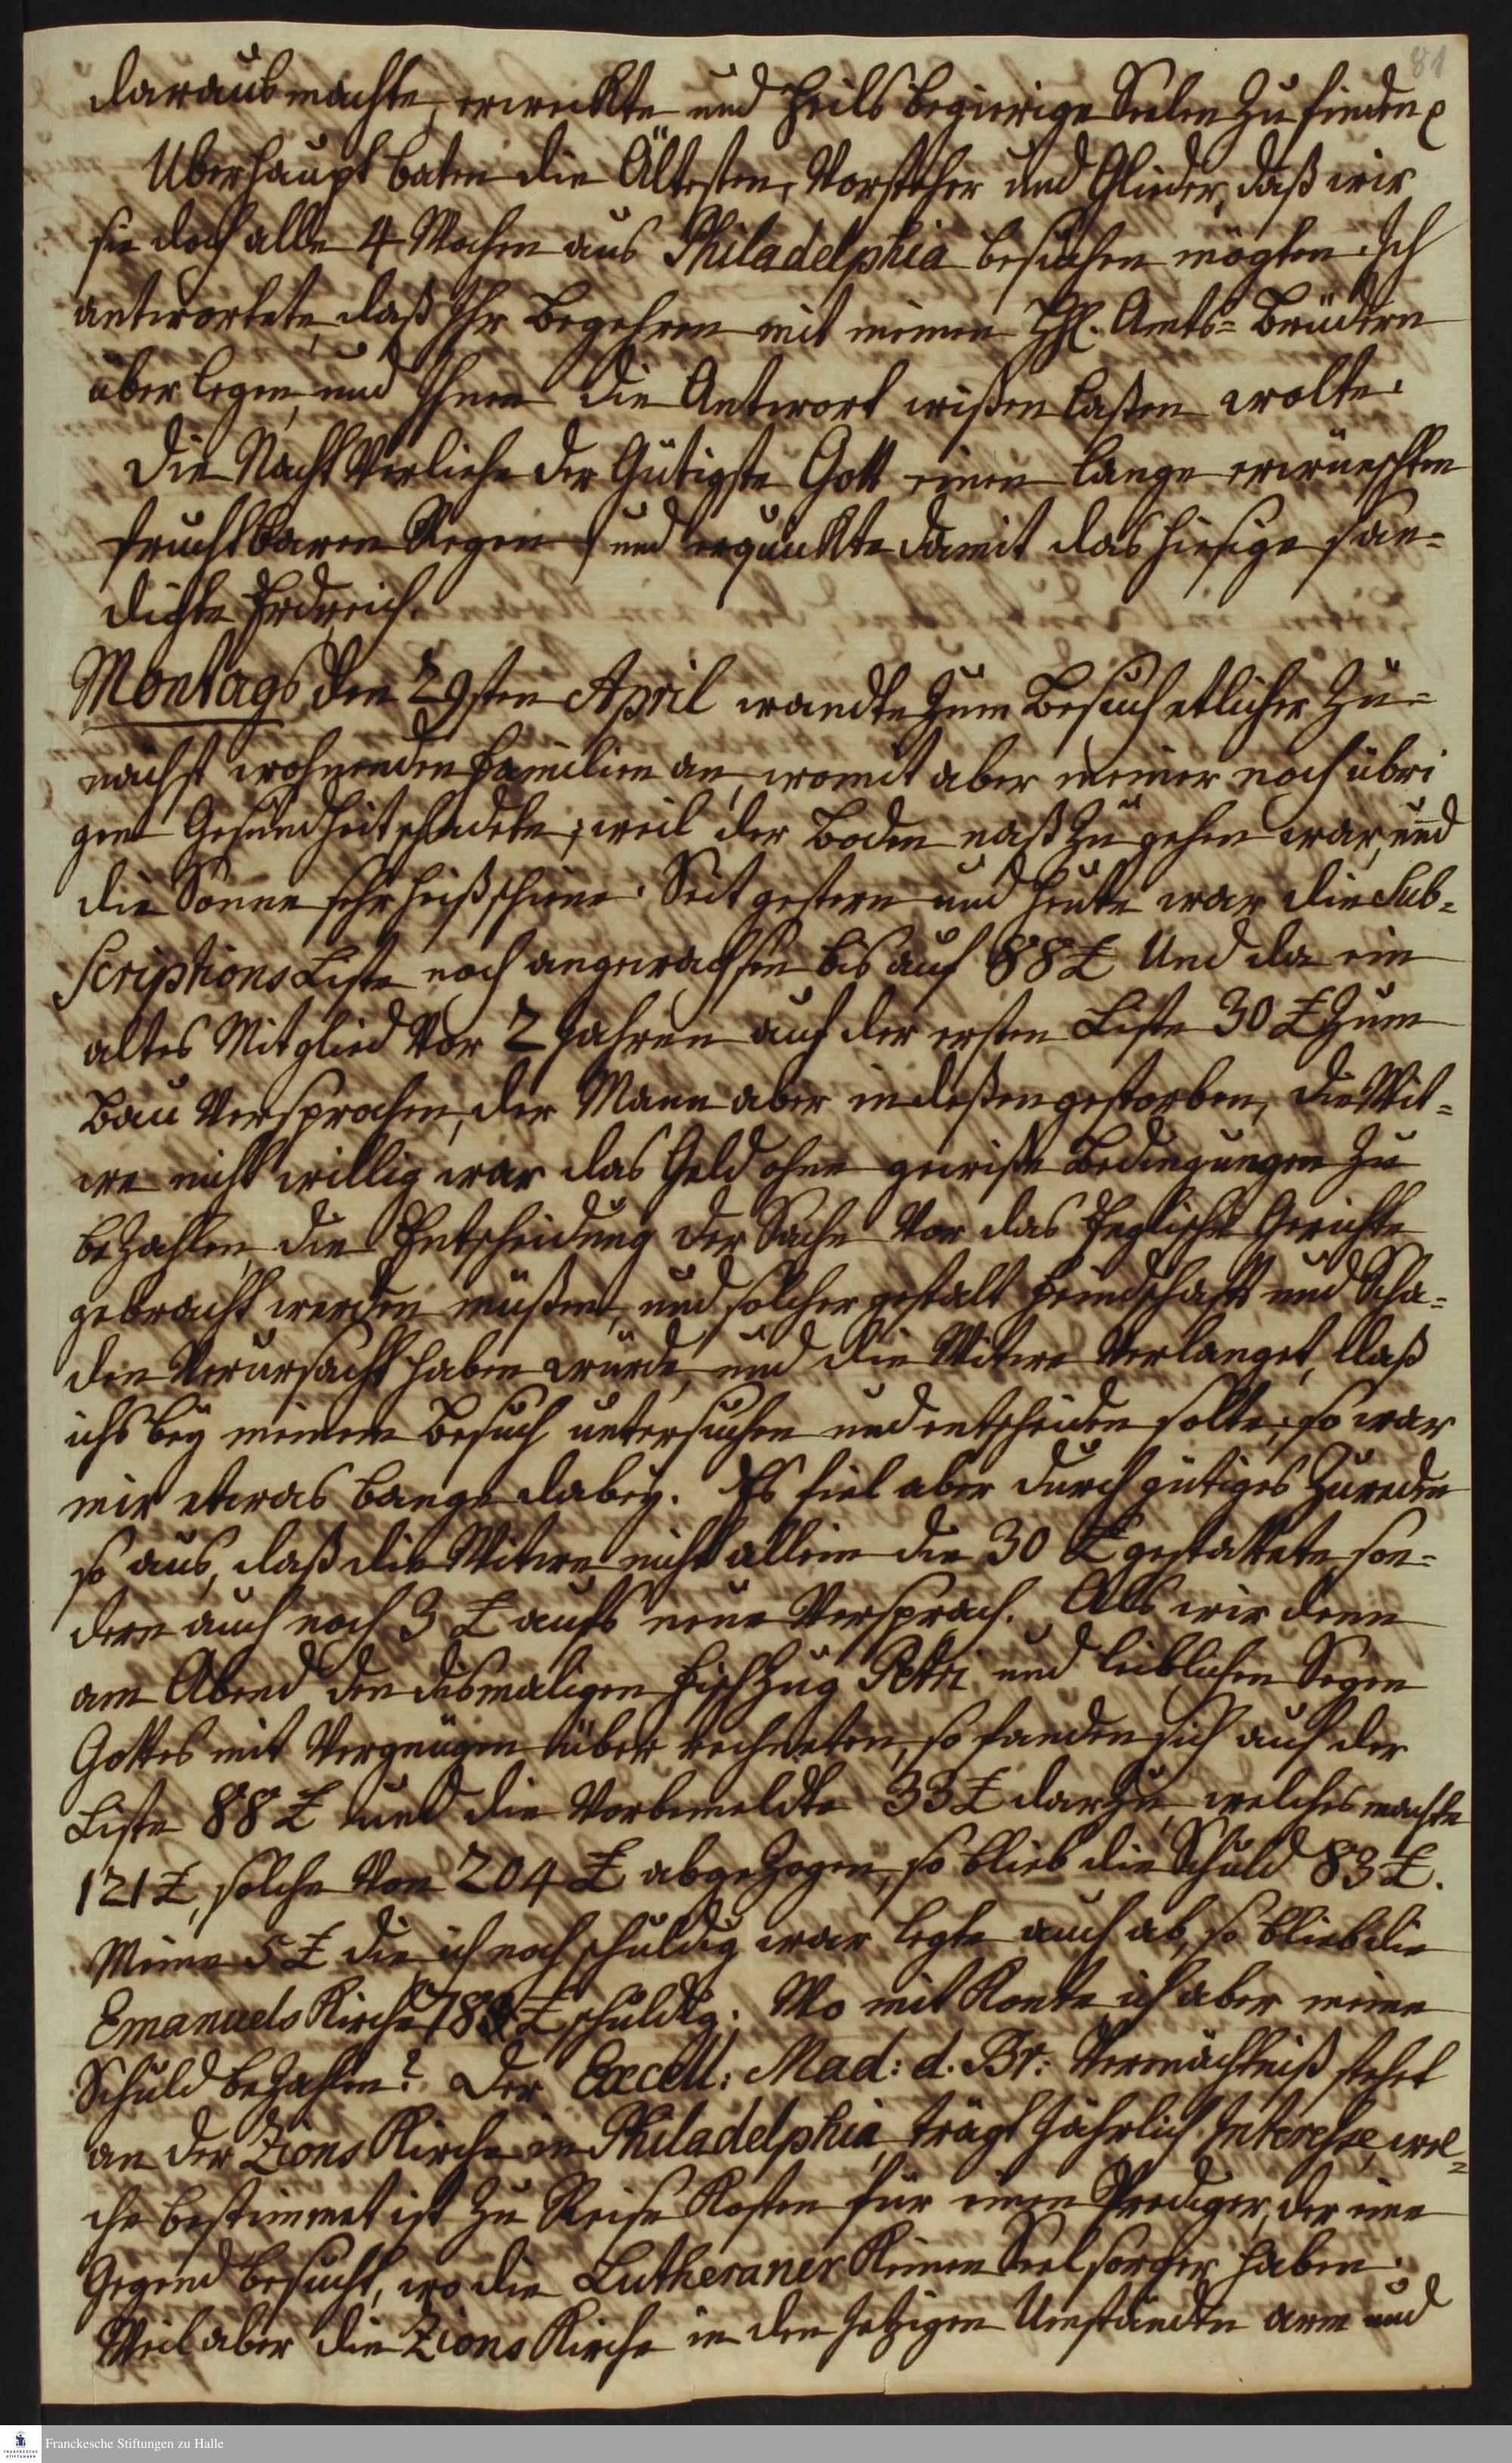 81
daraus machte, erweckte und Heils begierige Seelen zu finden
Uberhaupt baten die Ältesten, Vorsteher und Glieder, daß wir
sie doch alle 4 Wochen aus Philadelphia besuchen mögten. Ich
antwortete, daß Ihr Begehren mit meinen HhE. Amts-Brüdern
überlegen, und Ihnen die Antwort wißen laßen wolte.
Die Nacht Verliehe der Gütigste Gott einen lange erwünschten
fruchtbaren Regen und erquickte damit das hiesige san-
dichte Erdreich.
Montags den 29sten April wandte zum Besuch etlicher zu-
nächst wohnenden Familien an, womit aber meiner noch übri
gen Gesundheit schadete, weil der Boden naß zu gehen war, und
die Sonne sehr heiß schiene. Seit gestern und heute war die Sub-
scriptions Liste noch angewachsen bis auf 88 £ Und da ein
altes Mitglied Vor 2 Jahren auf der ersten Liste 30 £ zum
Bau Versprochen, der Mann aber indeßen gestorben, die Wit-
we nicht willig war das Geld ohne gewiße Bedingungen zu
bezahlen, die Entscheidung der Sache Vor das Englische Gerichte
gebracht werden müßen, und solcher gestalt Feindschafft und Scha-
den Verursacht haben würde, und die Witwe Verlanget, daß
ichs bey meinem Besuch untersuchen und entscheiden solte, so war
mir etwas bange dabey. Es fiel aber durch gütiges Zureden
so aus, daß die Witwe nicht allein die 30 £ gestattete, son-
dern auch noch 3 £ aufs neue Versprach. Als wir denn
am Abend den dismaligen Fischzug Petri und leiblichen Segen
Gottes mit Vergnügen über rechneten, so fanden sich auf der
Liste 88 £ und die Vorbemeldte 33 £ darzu, welches machte
121 £, solche Von 204 £ abgezogen, so blieb die Schuld 83 £.
Meine 5 £ die ich noch schuldig war legte auch ab, so blieb die
Emanuels Kirche 78 £ schuldig. Wo mit Konte ich aber meine
Schuld bezahlen? Der Excell: Mad: d. Br: Vermächtniß stehet
an der Zions Kirche in Philadelphia, trägt Jährlich Interesse, wel-
che bestimmet ist zu Reise Kosten für einen Prediger, der eine
Gegend besucht, wo die Lutheraner Keinen Seelsorger haben.
Weil aber die Zions Kirche in den Jetzigen Umständen arm und
FRANCKESCHE STIFTUNGEN
Franckesche Stiftungen zu Halle